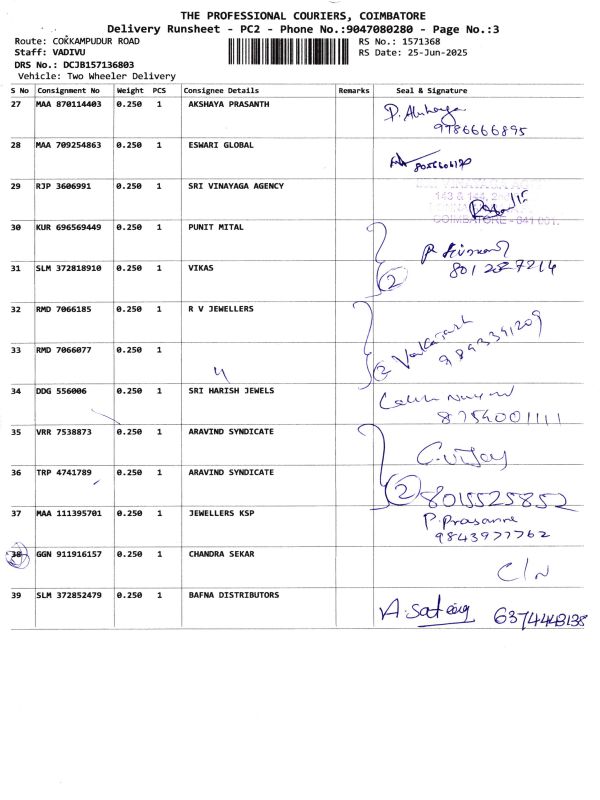 THE PROFESSIONAL COURIERS, COIMBATORE
Delivery Runsheet - PC2 - Phone No.:9047080280 - Page No.:3
Route: COKKAMPUDUR ROAD
RS No.: 1571368
Staff: VADIVU
RS Date: 25-Jun-2025
DRS No.: DCJB157136803
Vehicle: Two Wheeler Delivery
S No Consignment No Weight PCS Consignee Details Remarks Seal & Signature
27 MAA 870114403 0.250 1 AKSHAYA PRASANTH
9786666895
28 MAA 709254863 0.250 1 ESWARI GLOBAL
29 RJP 3606991 0.250 1 SRI VINAYAGA AGENCY
COIMBATORE - 641 001.
30 KUR 696569449 0.250 1 PUNIT MITAL
31 SLM 372818910 0.250 1 VIKAS
2
32 RMD 7066185 0.250 1 R V JEWELLERS
33 RMD 7066077 0.250 1
2 9843341209
34 DDG 556006 0.250 1 SRI HARISH JEWELS
8754001111
35 VRR 7538873 0.250 1 ARAVIND SYNDICATE
C. Vijay
36 TRP 4741789 0.250 1 ARAVIND SYNDICATE
2 8015525852
37 MAA 111395701 0.250 1 JEWELLERS KSP
P. Prasanne
9843977762
38 GGN 911916157 0.250 1 CHANDRA SEKAR
C/N
39 SLM 372852479 0.250 1 BAFNA DISTRIBUTORS
6374443138